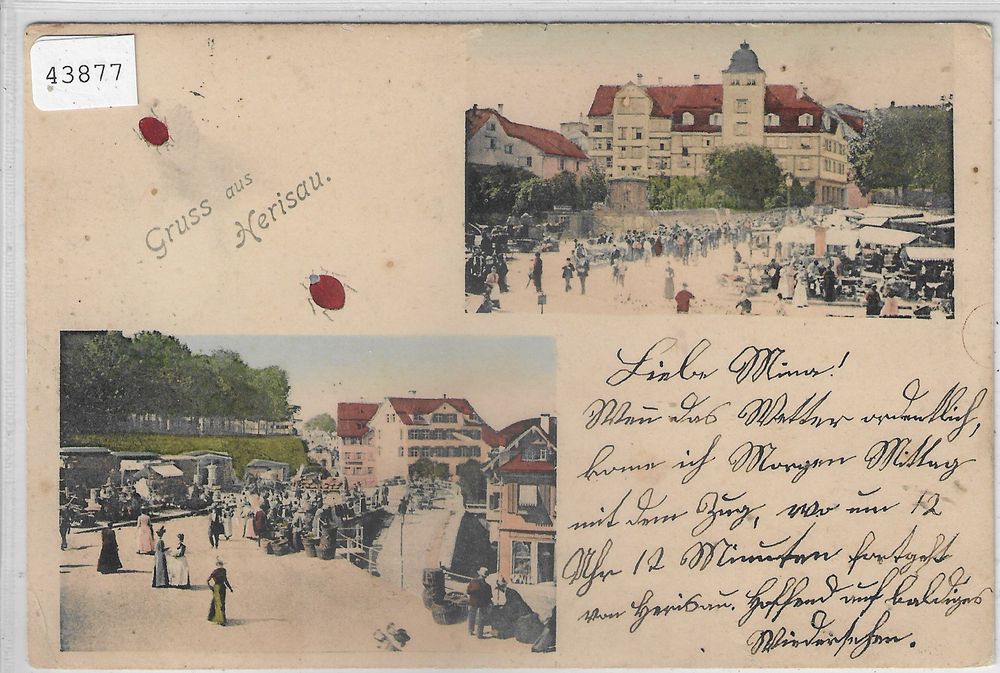 43877
Gruss aus
Herisau.
Liebe Mina!
Wen̅ das Wetter ordentlich,
kome ich Morgen Mittag
mit dem Zug, wo um 12
Uhr 12 Minuten fortgeht
von Herisau. Hoffend auf baldiges
Wiedersehen.